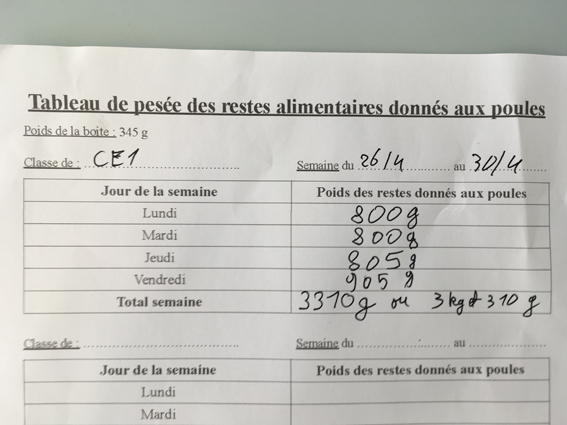 Tableau de pesée des restes alimentaires donnés aux poules
Poids de la boite : 345 g
Classe de : CE1 Semaine du 26/4 au 30/4
Jour de la semaine Poids des restes donnés aux poules
Lundi 800g
Mardi 800g
Jeudi 805g
Vendredi 905 g
Total semaine 3310g ou 3 kg et 310 g
Classe de : Semaine du au
Jour de la semaine Poids des restes donnés aux poules
Lundi
Mardi